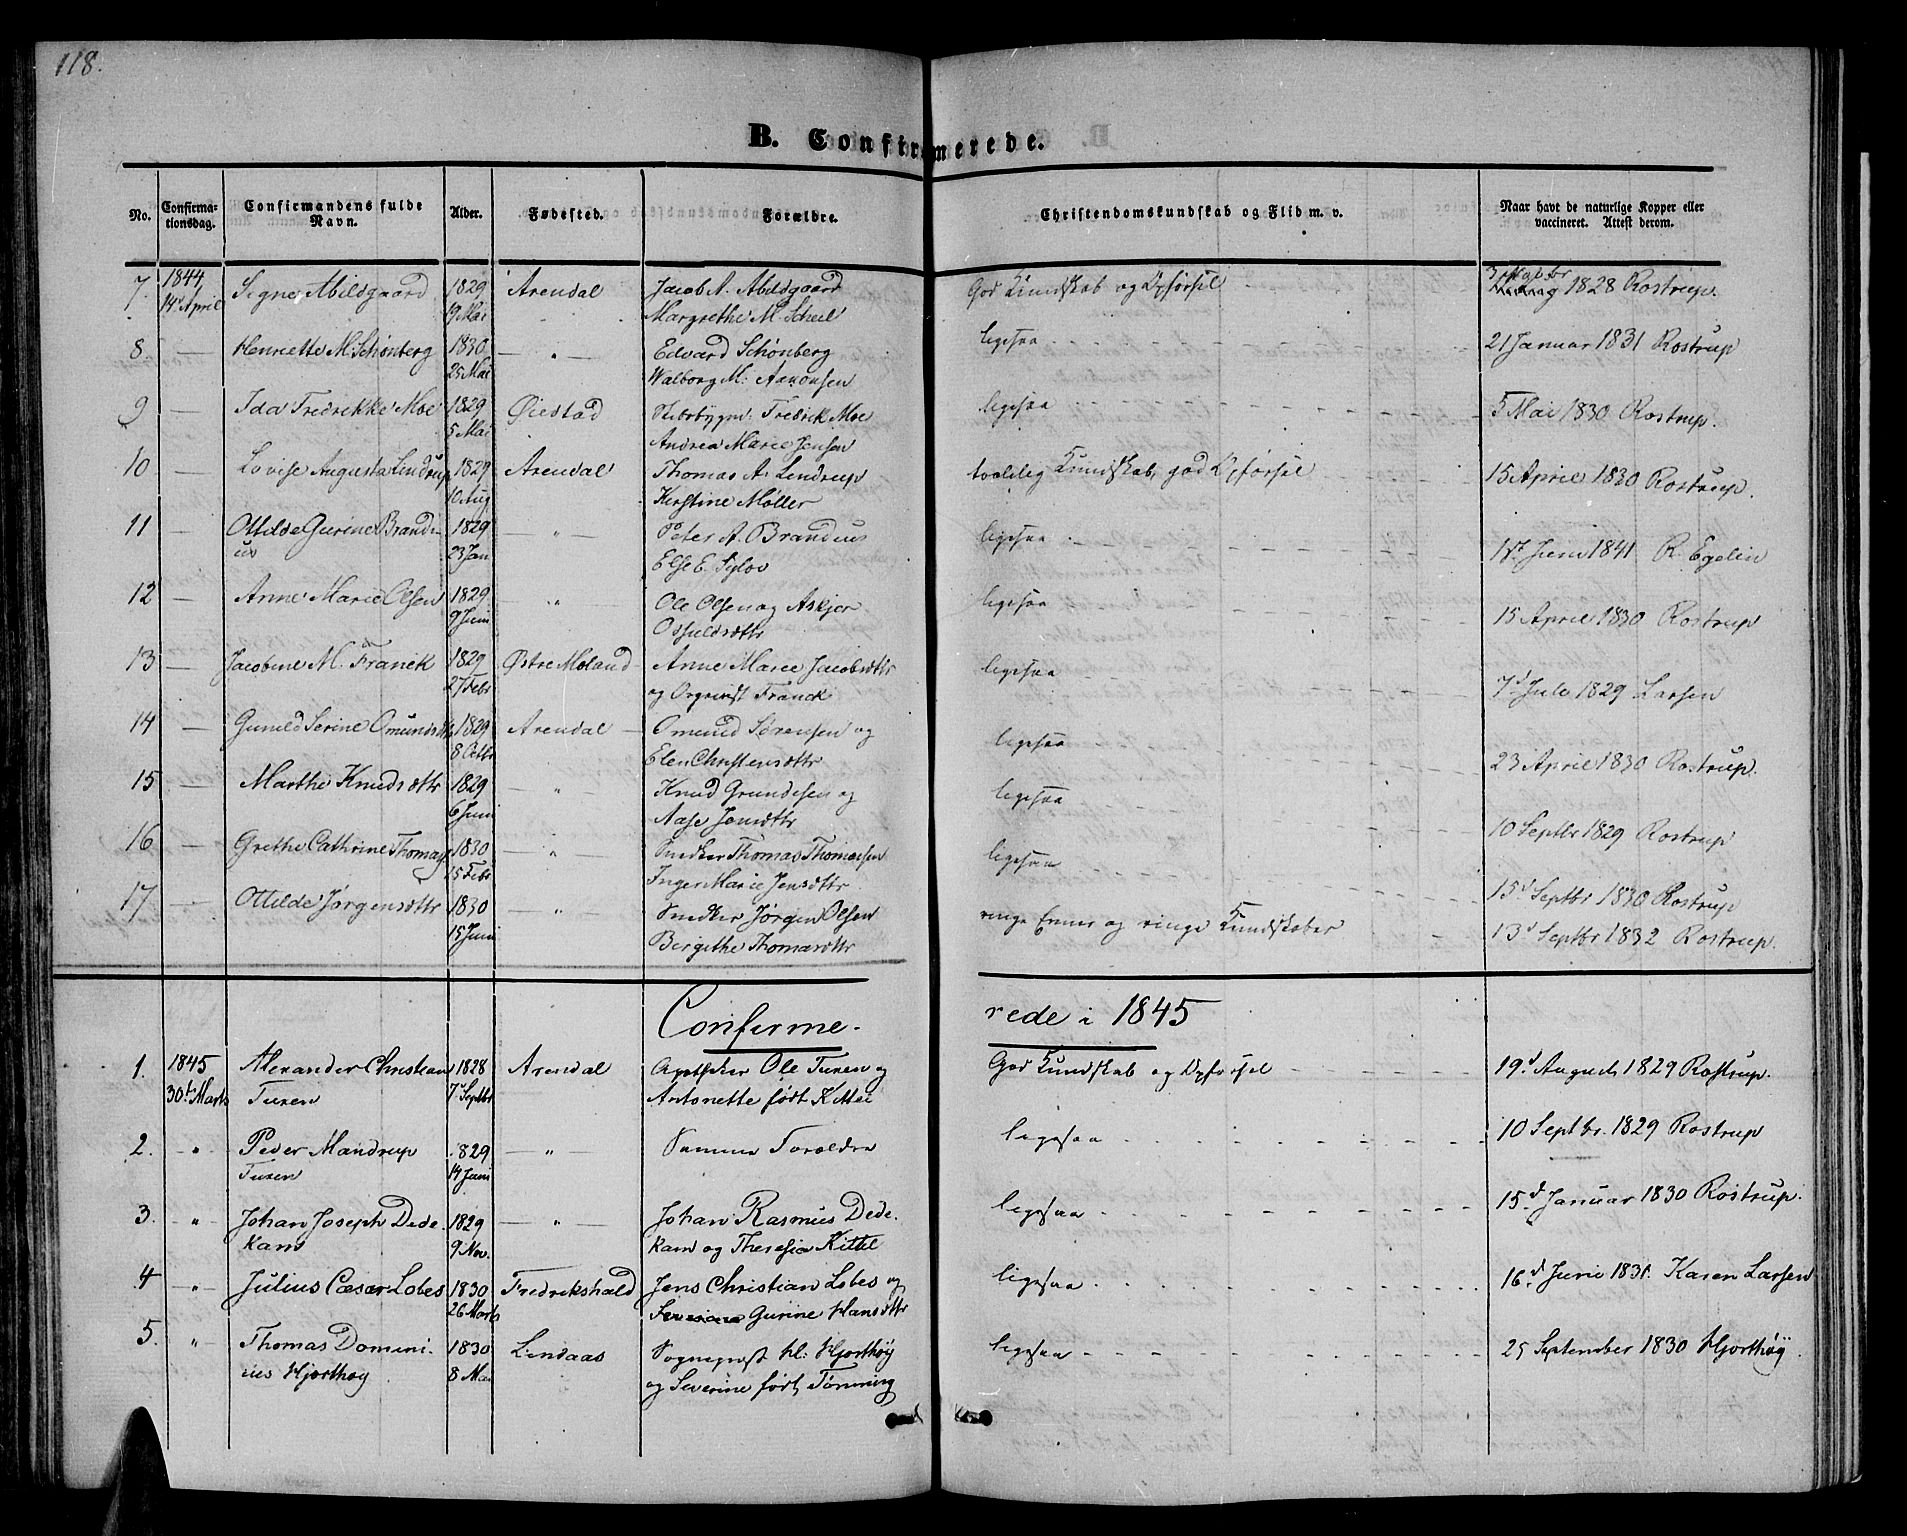 118.
B. Confirmerede.
No. Confirma-tionsdag. Confirmandens fulde Navn. Alder. Fødested. Forældre. Christendomskundskab og Flid m. v. Naar havt de naturlige Kopper eller vaccineret. Attest derom.
7. 1844 Signe Abildgaard 1829 Arendal Jacob A. Abildgaard God Kundskab og Opførsel 1828 Rostrup.
14de April 19 Mai Margrethe M. Scheel
8. — Henriette M. Schønberg 1830 — " — Edvard Schønberg ligesaa 21 Januar 1831 Rostrup
25 Mai Walborg M. Aanonsen
9 — Ida Fredrikke Moe 1829 Øiestad Skibsbygm: Fredrik Moe ligesaa 5 Mai 1830 Rostrup.
5 Mai Andrea Marie Jensen
10 — Lovise Augusta Lindrup 1829 Arendal Thomas A. Lendrup taalelig Kundskab, god Opførsel 15 April 1830 Rostrup.
10 Aug Kirstine Møller
11 — Ottilde Gurine Brande- 1829 — " — Peter A. Brandeus ligesaa 17 Juni 1841 R. Egelin
us 23 Jan Else E. Sylov
12 — Anne Marie Olsen 1829 — " — Ole Olsen og Askjer ligesaa 15 April 1830 Rostrup
9 Juni Osfuldsdttr
13 — Jacobine M. Franck 1829 Østre Moland Anne Marie Jacobsdttr ligesaa 7d Juli 1829 Larsen
27 Febr og Organist Franck
14 — Gunild Serine Omundsdtr 1829 Arendal Omund Sørensen og ligesaa 23 April 1830 Rostrup.
8 Octbr Elen Christensdttr
15 — Marthe Knudsdttr 1829 — " — Knud Grundesen og ligesaa 10 Septbr 1829 Rostrup
6 Juni Aase Jensdttr
16 — Grethe Cathrine Thomas 1830 — " — Snedker Thomas Thomassen ligesaa 15d Septbr 1830 Rostrup
15 Febr Inger Marie Jensdttr
17. — Ottilde Jørgensdttr 1830 — " — Snedker Jørgen Olsen ringe Evner og ringe Kundskaber 13d Septbr 1832 Rostrup.
15 Juni Bergithe Thomasdttr
Confirme- rede i 1845
1. 1845 Alexander Christian 1828 Arendal Apotheker Ole Tuxen og God Kundskab og Opførsel 19d August 1829 Rostrup.
30te Marts Tuxen 7 Septbr Antonette født Kittel
2. " Peder Mandrup 1829 — " — Samme Forældre ligesaa 10 Septbr. 1829 Rostrup
Tuxen 14 Juni
3. " Johan Joseph Dede- 1829 — " — Johan Rasmus Dede- ligesaa 15d Januar 1830 Rostrup.
kam 9 Nov. kam og Theresia Kittel
4 " Julius Cæsar Lobes 1830 Fredrikshald Jens Christian Lobes og ligesaa 16d Juni 1831. Karen Larsen
26 Marts Gurine Hansdttr
5. " Thomas Domini- 1830 Lindaas Sogneprest hl: Hjorthøy ligesaa 25 September 1830 Hjorthøy
cus Hjorthøy 8 Mai og Severine født Tønning